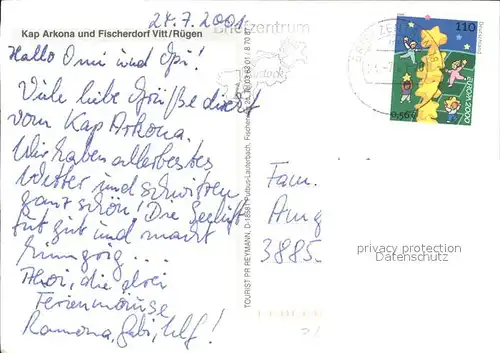 24.7.2001
Kap Arkona und Fischerdorf Vitt/Rügen
Briefzentrum
Hallo Omi und Opi!
Viele liebe Grüße direkt
vom Kap Arkona.
Wir haben allerbestes
Wetter und schwitzen
ganz schön! Die Seeluft
tut gut und macht
hungrig...
Ahoi, die drei
Ferienmäuse
Ramona, Gabi, Ulf!
TOURIST PR REYMANN, D-18581 Putbus-Lauterbach, Fischerstr.
110
Deutschland
EUROPA 2000
0,56 €
Fam.
Aug
3885
privacy protection
Datenschutz